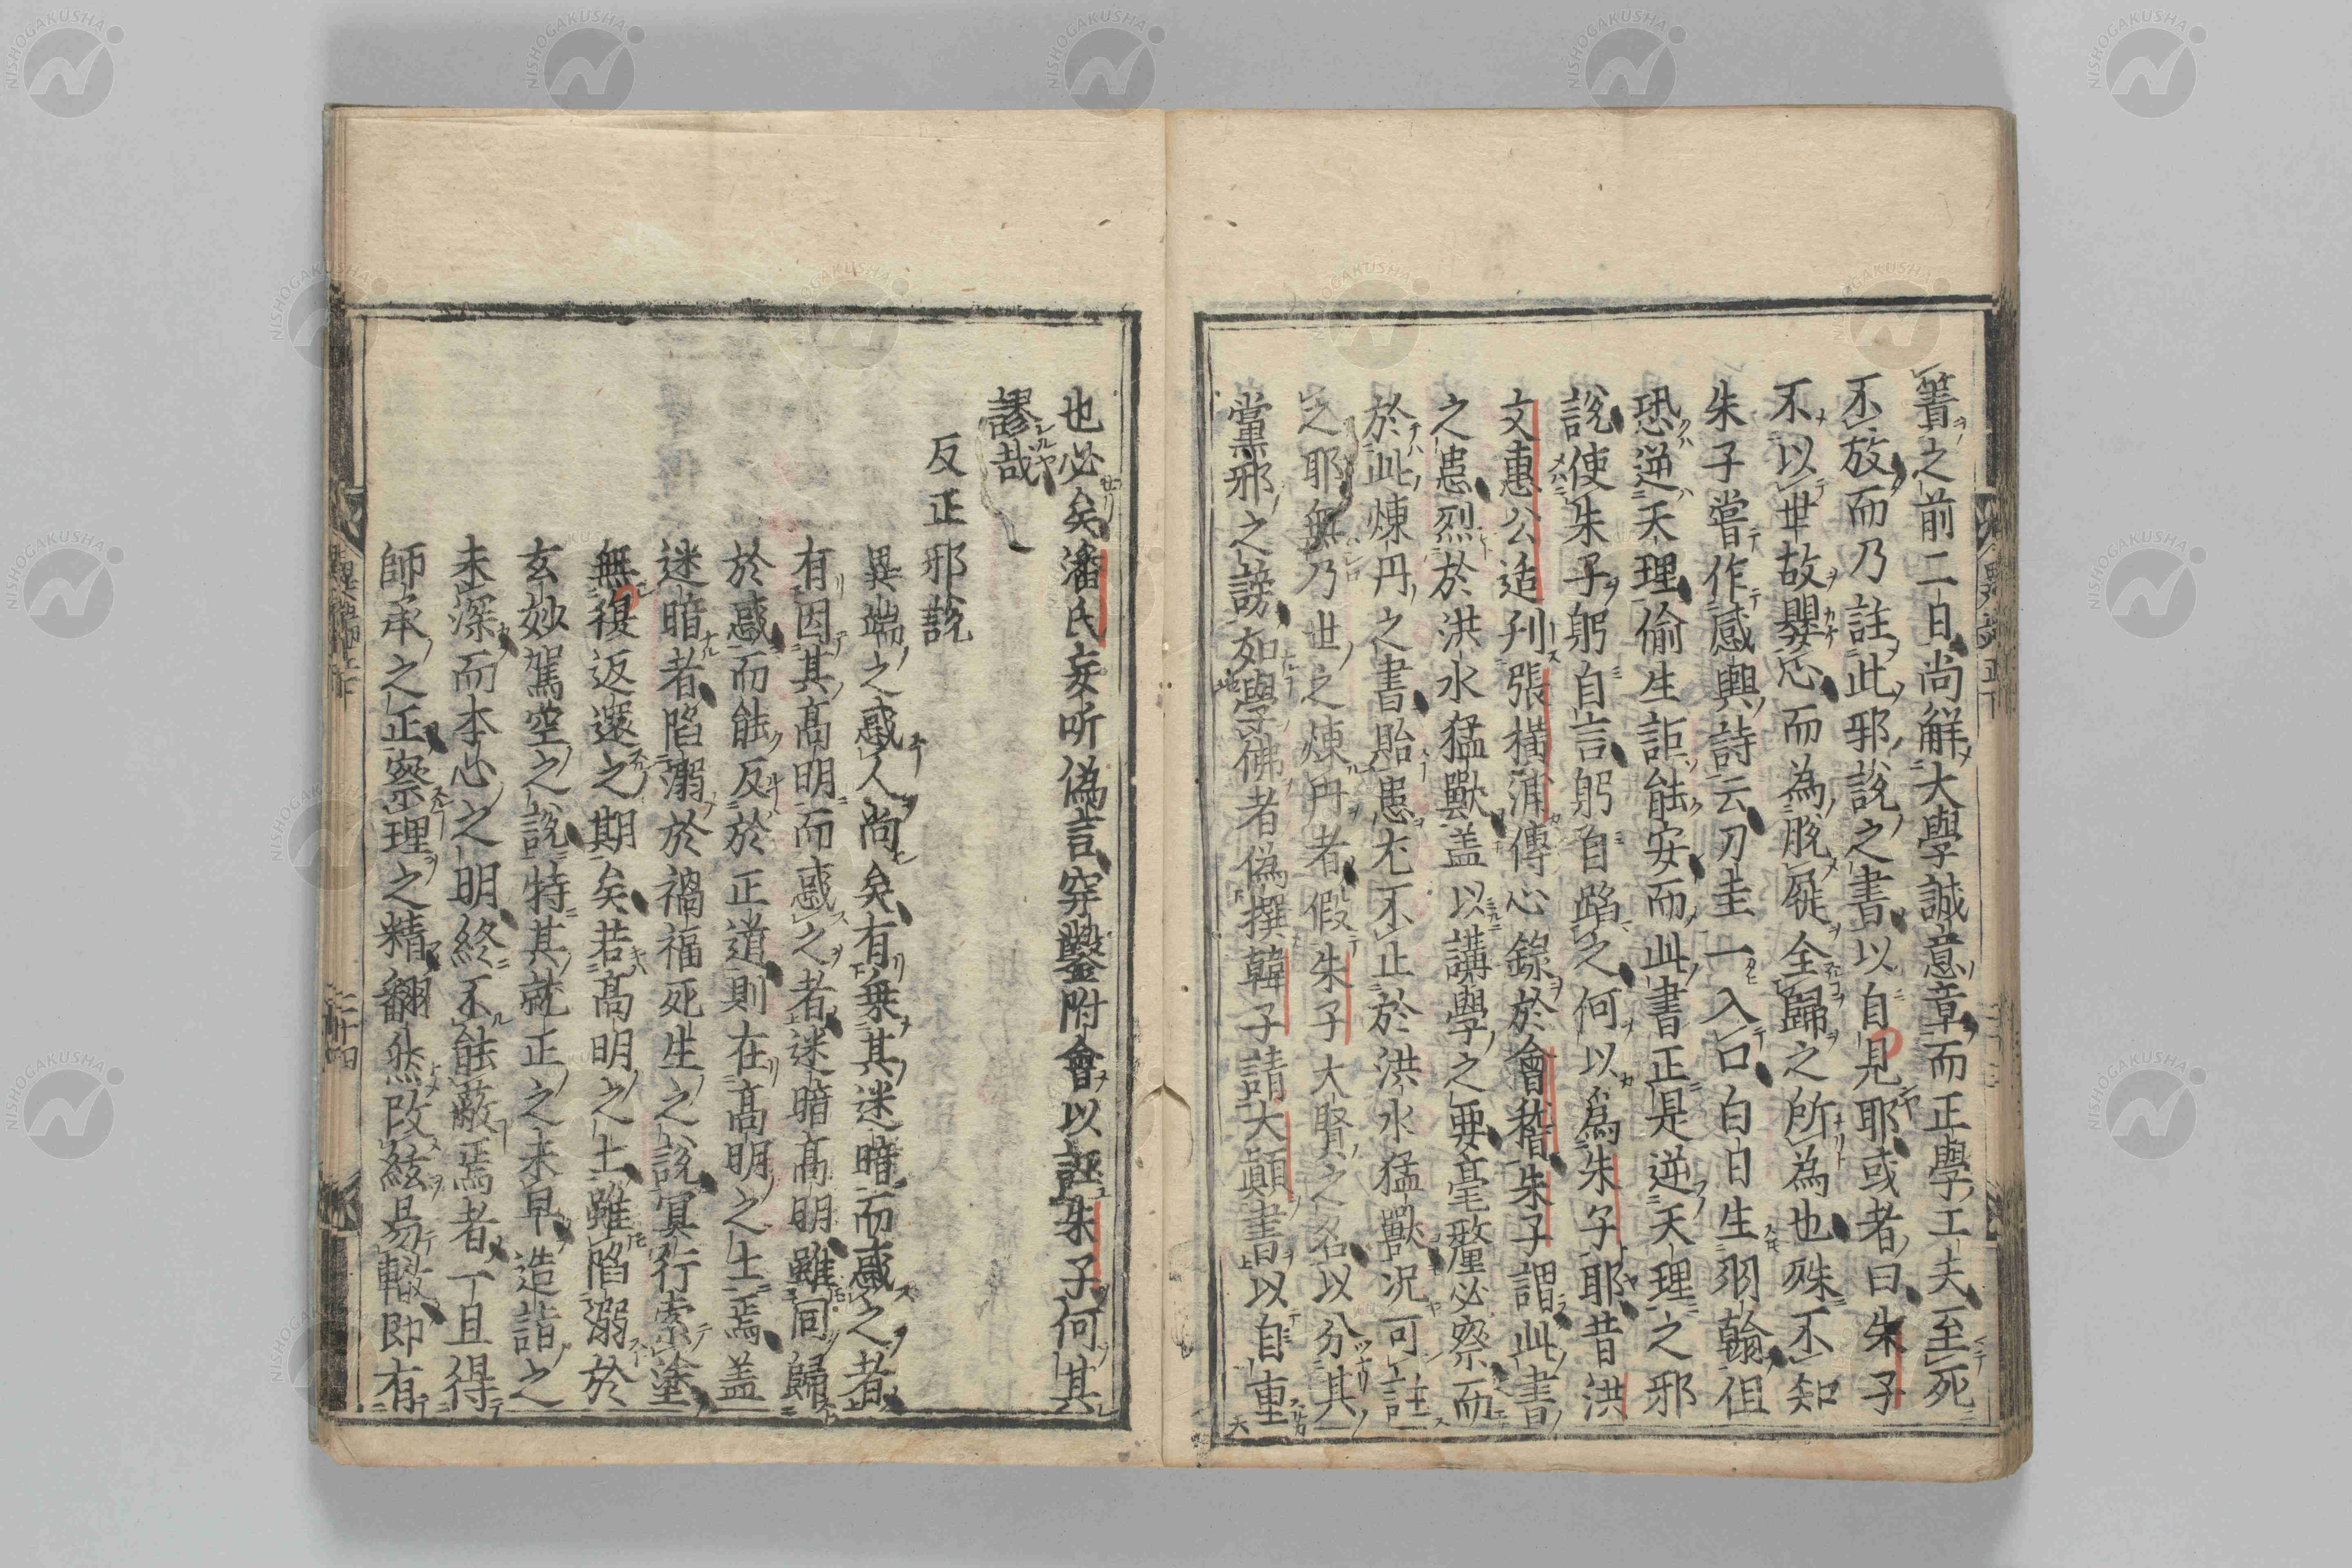 簀之前二日尚解大學誠意章而正學工夫至死
不放而乃註此邪說之書以自見耶或者曰朱子
不以世故嬰心而為脫屣全歸之所為也殊不知
朱子嘗作感興詩云刀圭一入口白日生羽翰但
恐逆天理偷生詎能安而此書正是逆天理之邪
說使朱子躬自言躬自蹈之何以爲朱子耶昔洪
文惠公适刋張橫浦傳心錄於會稽朱子謂此書
之患烈於洪水猛獸盖以講學之要毫釐必察而
於此煉丹之書貽患尤不止於洪水猛獸况可註
之耶無乃世之煉丹者假朱子大賢之名以分其
黨邪之謗如學佛者偽撰韓子請大顛書以自重
也必矣潘氏妄听偽言穿鑿附會以誣朱子何其
謬哉
反正邪說
異端之惑人尚矣有乗其迷暗而惑之者
有因其高明而惑之者迷暗高明雖同歸
於惑而能反於正道則在高明之士焉盖
迷暗者陷溺於禍福死生之說冥行索塗
無復返還之期矣若高明之士雖陷溺於
玄妙駕空之說特其就正之未早造詣之
未深而本心之明終不能蔽焉者一旦得
師承之正察理之精翻然改絃易轍即有
NISHOGAKUSHA